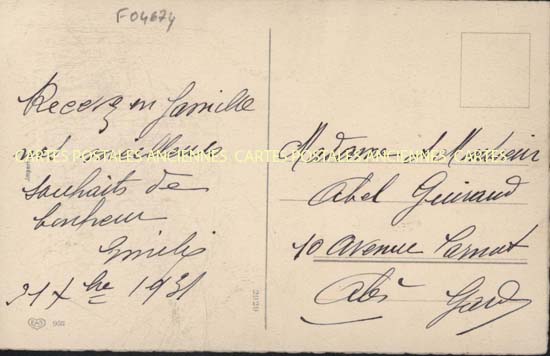 F04674
Recevez en famille
meilleurs
souhaits de
bonheur
Emilie
31 Xbre 1931
CARTES POSTALES ANCIENNES CARTES POSTALES ANCIENNES CARTES POSTALES ANCIENNES
Madame et Monsieur
Abel Guiraud
10 Avenue Carnot
Alès Gard
EAS 955
2929